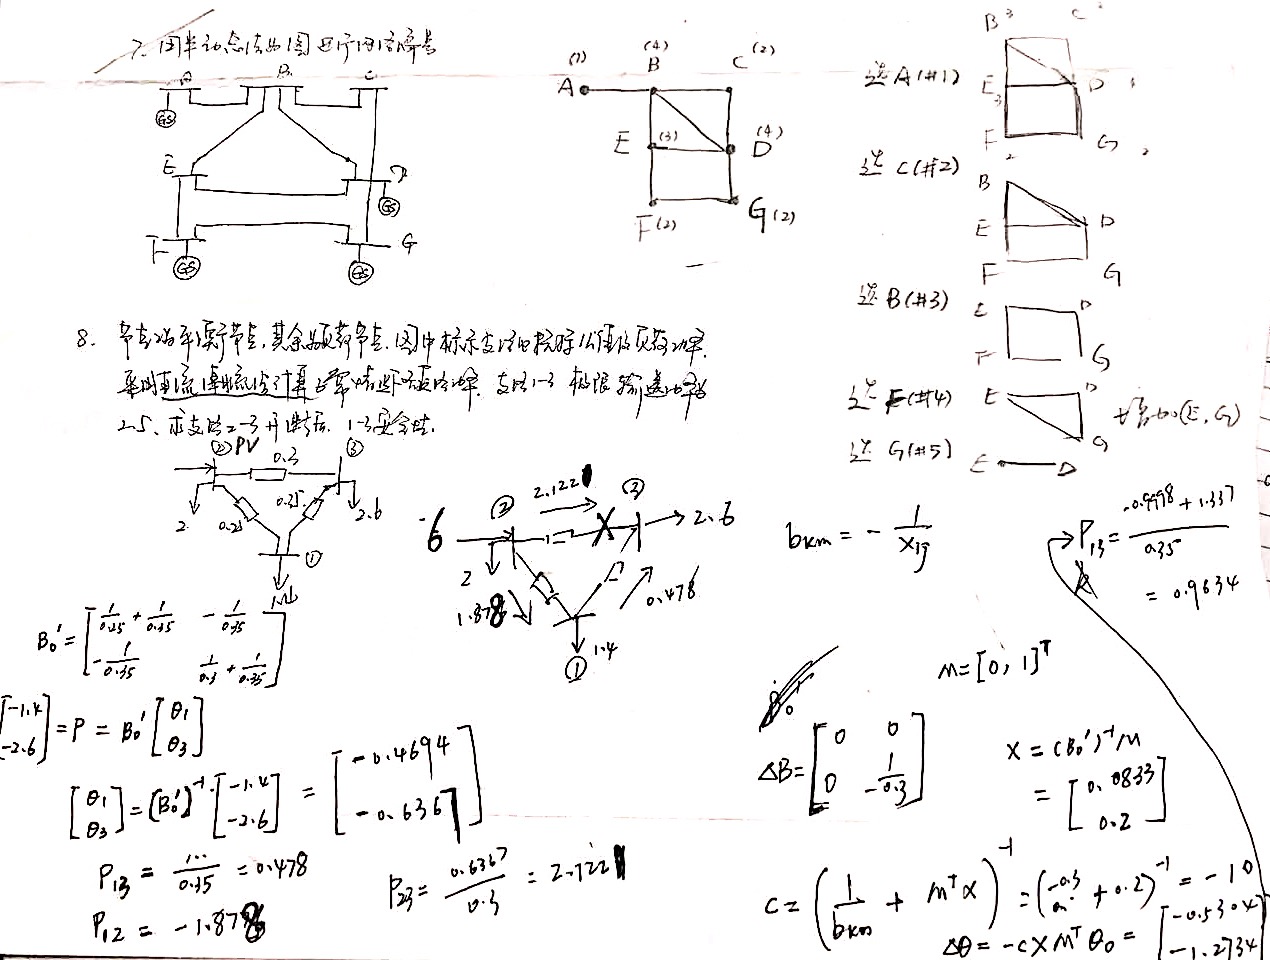 7. 用半动态法如图进行网络编号
A
B
C
GS
E
D
GS
F
G
GS
GS
(1)
(4)
(2)
A
B
C
E
(3)
D
(4)
F (2)
G (2)
选 A (#1)
B 3
C
E 3
D
F
G
选 C (#2)
B
E
D
F
G
选 B (#3)
E
D
F
G
选 F (#4)
E
D
G
(E, G)
选 G (#5)
E
D
8. 节点2为平衡节点,其余为负荷节点.图中标示支路电抗标幺值及负荷功率.
采用直流潮流法计算正常情况下支路功率. 支路1-3 极限输送功率为
2.5. 求支路2-3开断后. 1-3安全性.
② PV
0.3
③
2
0.25
0.35
2.6
①
1.4
6
②
2.122
③
2.6
2
1.878
0.478
①
1.4
b_km = - 1/x_ij
P13 = (-0.9998 + 1.337)/0.35
= 0.9634
B0' = [1/0.25 + 1/0.35  -1/0.35
-1/0.35  1/0.3 + 1/0.35]
[-1.4
-2.6] = P = B0' [θ1
θ3]
[θ1
θ3] = (B0')^-1 · [-1.4
-2.6] = [-0.4694
-0.6367]
P13 = .../0.35 = 0.478
P12 = -1.878
P23 = 0.6367/0.3 = 2.122
M = [0, 1]^T
B0'
ΔB = [0  0
0  1/-0.3]
X = (B0')^-1 M
= [0.0833
0.2]
C = (1/b_km + M^T X)^-1 = (-0.3 + 0.2)^-1 = -10
Δθ = -C X M^T θ0 = [-0.5304
-1.2734]